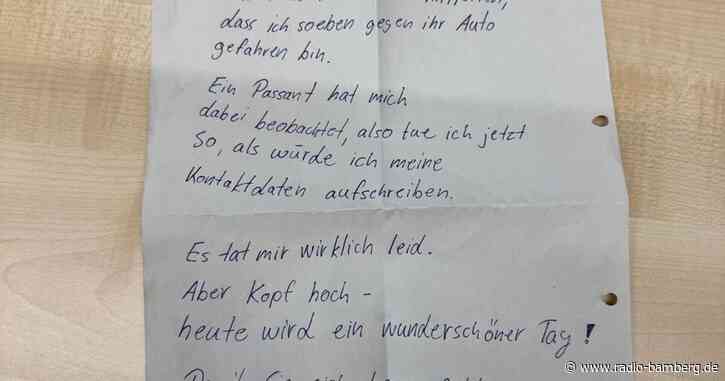 dass ich soeben gegen ihr Auto
gefahren bin.
Ein Passant hat mich
dabei beobachtet, also tue ich jetzt
so, als würde ich meine
Kontaktdaten aufschreiben.
Es tat mir wirklich leid.
Aber Kopf hoch -
heute wird ein wunderschöner Tag!
© www.radio-bamberg.de